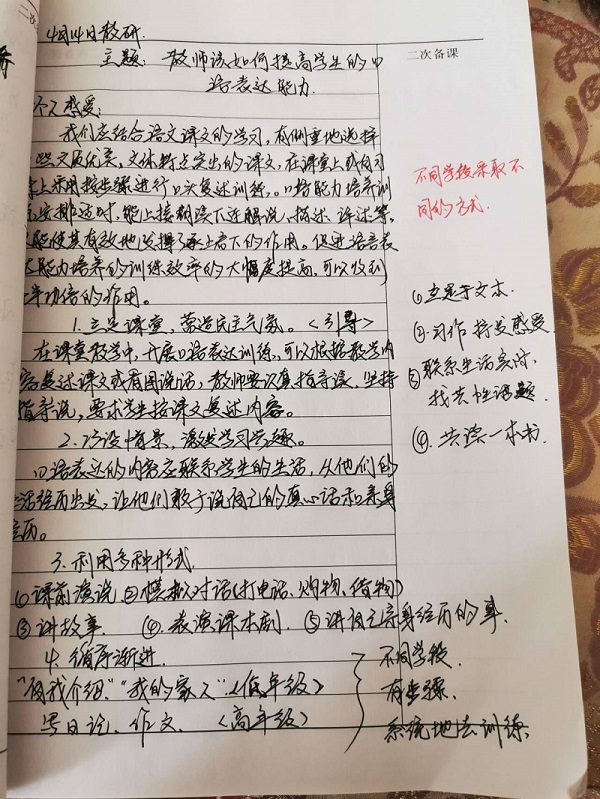 4月14日教研.
主题: 教师该如何提高学生的口
语表达能力.
个人感受:
我们应结合语文课文的学习, 有侧重地选择
一些文质优美, 文体特点突出的课文, 在课堂上或自习
课上采用按步骤进行口头复述训练。口语能力培养训
安排适时, 能上接朗读下连解说、描述、评述等,
能使其有效地发挥了承上启下的作用。促进语言表
达能力培养的训练效率的大幅度提高, 可以收到
半功倍的作用。
1. 立足课堂, 营造民主气氛。<引导>
在课堂教学中, 开展口语表达训练, 可以根据教学内
容复述课文或看图说话, 教师要认真指导读, 坚持
指导说, 要求学生按课文复述内容。
2. 巧设情景, 激发学习兴趣。
口语表达的内容应联系学生的生活, 从他们的
生活经历出发, 让他们敢于说自己的真心话和亲身
经历。
3. 利用多种形式.
①课前演说 ②模拟对话(打电话、购物、借物)
③讲故事. ④表演课本剧. ⑤讲自己亲身经历的事.
4. 循序渐进.
"自我介绍" "我的家人" <低年级>
写日记、作文. <高年级>
二次备课
不同学段采取不
同的方式.
①立足于文本.
②习作 抒发感受
③联系生活实时,
找共性话题.
④共读一本书.
不同学段.
有步骤.
系统地去训练.